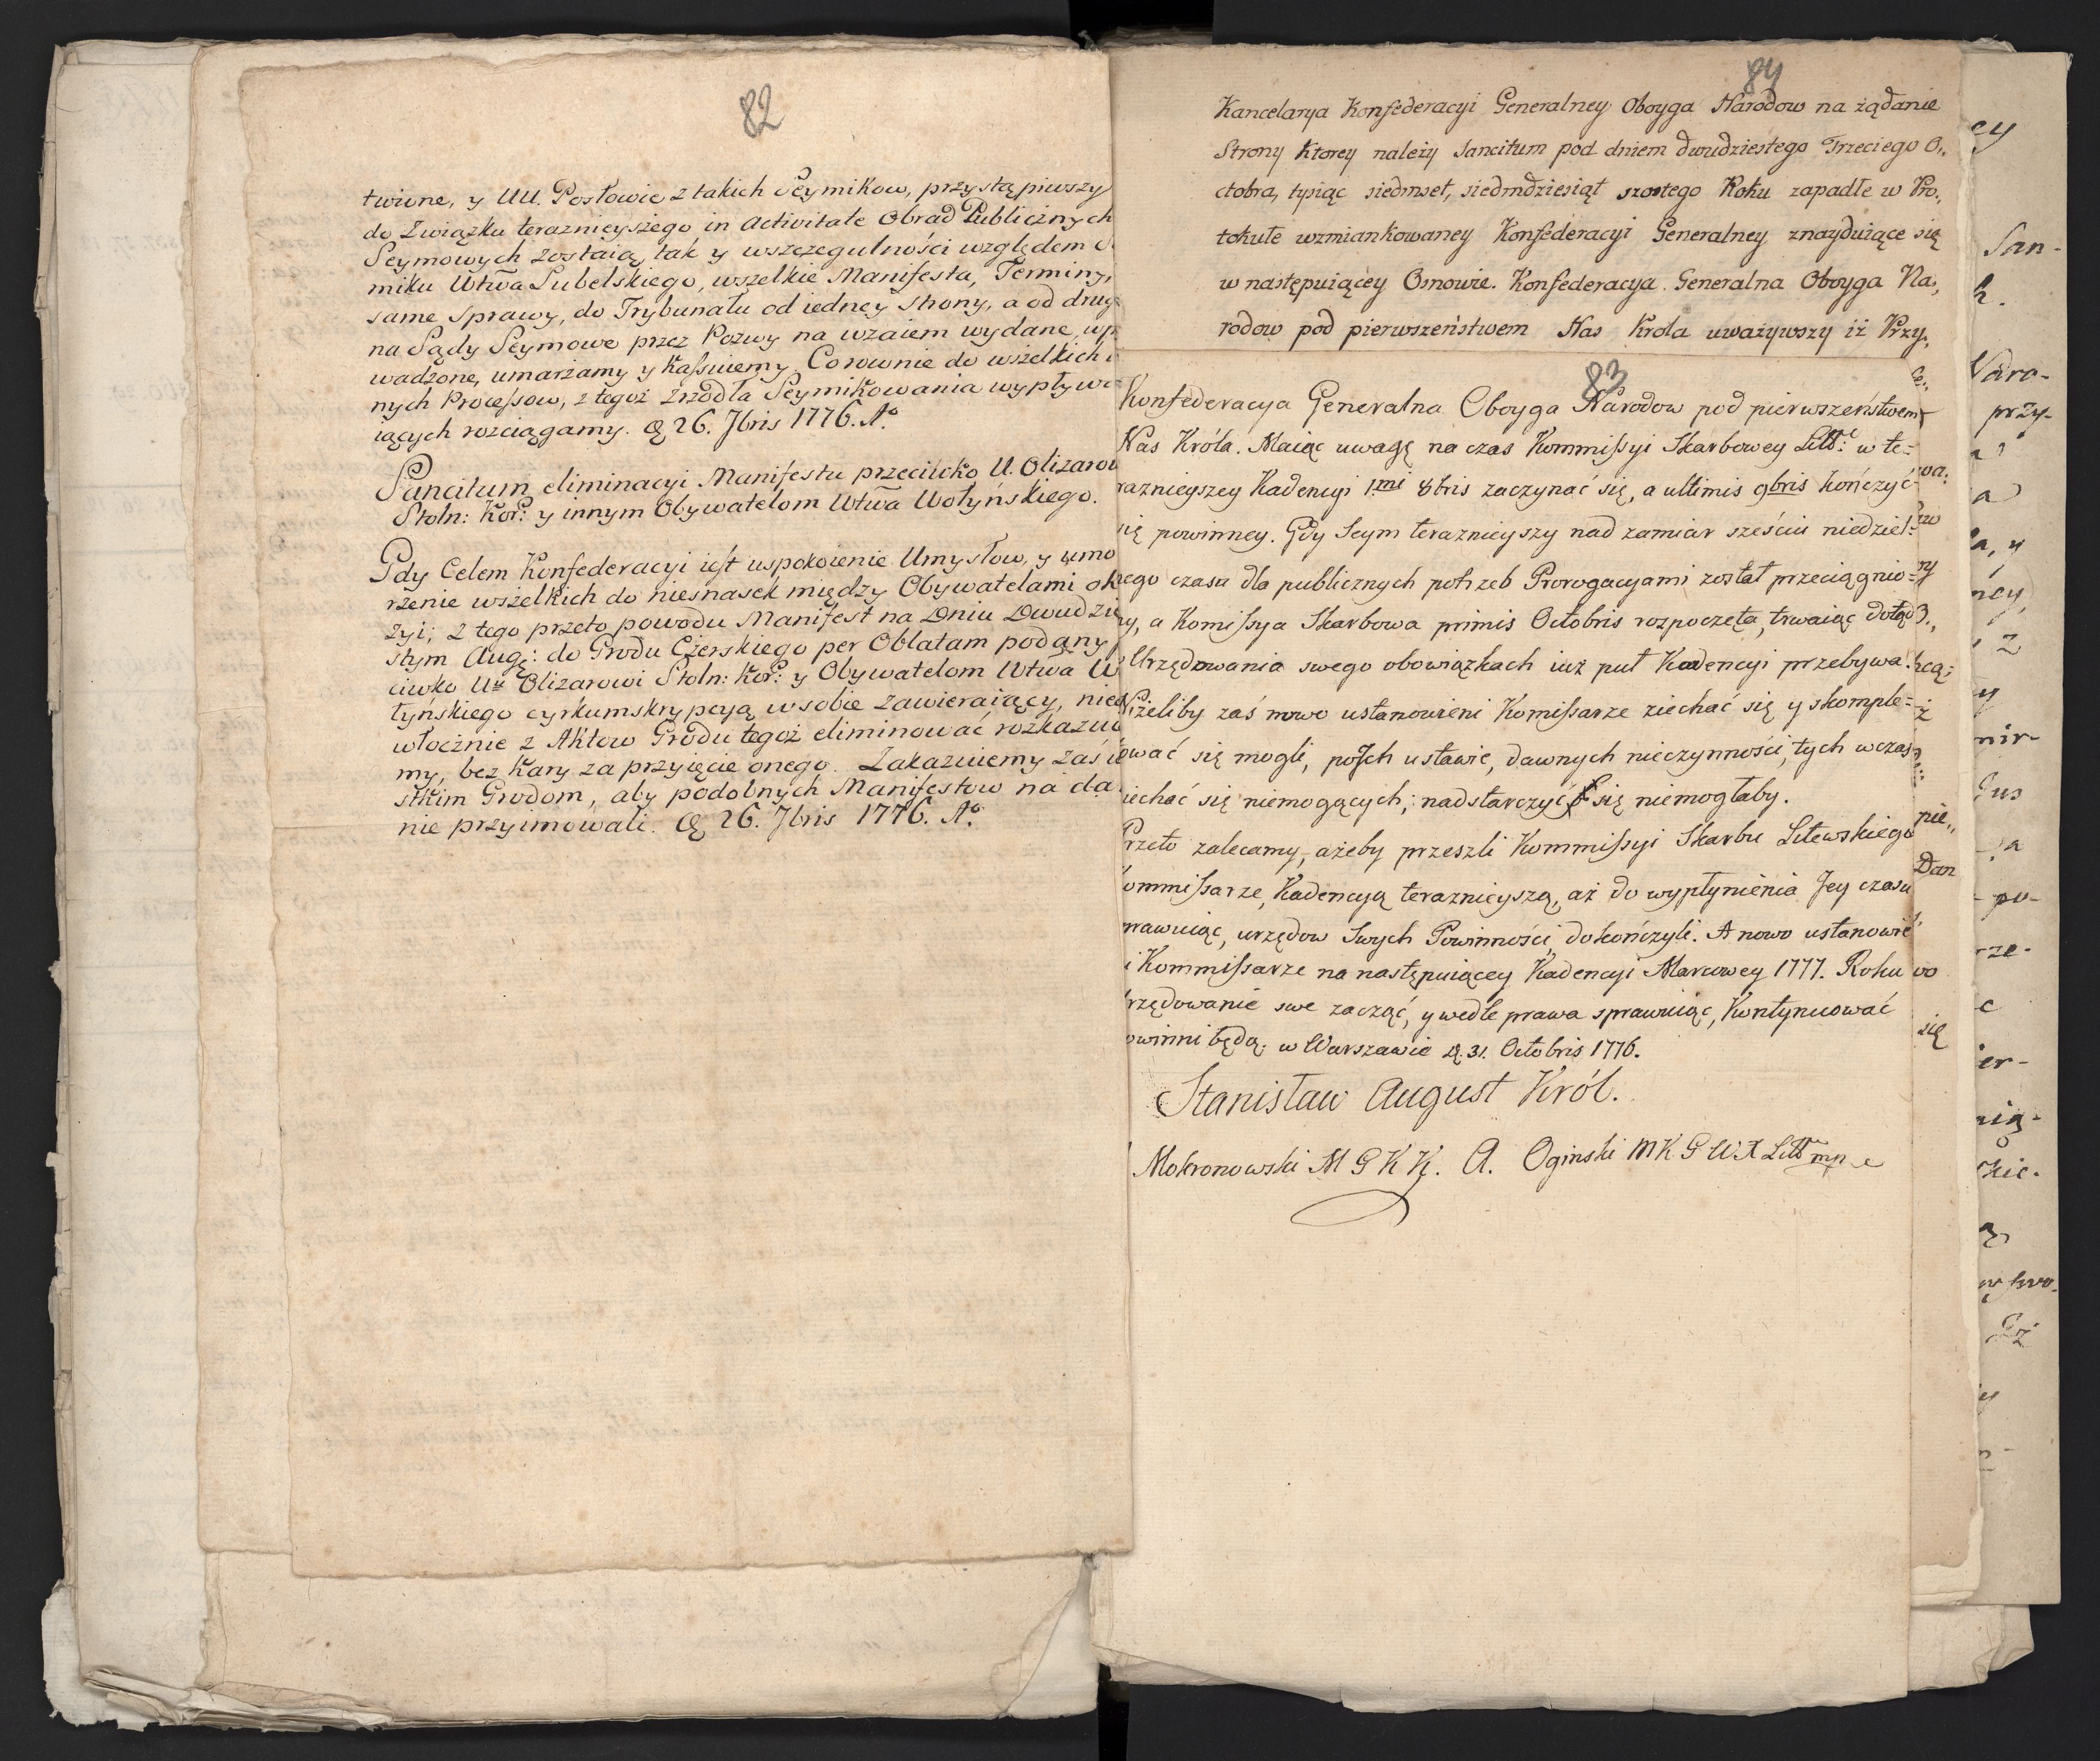 82
twione, y UU. Posłowie z takich Seymikow, przystąpiwszy
do Związku teraznieyszego in Activitate Obrad Publicznych
Seymowych zostaią, tak y wszczegulności względem
miku Wtwa Lubelskiego, wszelkie Manifesta, Terminy,
same Sprawy, do Trybunału od iedney strony, a od drug
na Sądy Seymowe przez Pozwy na wzaiem wydane, wp
wadzone, umarzamy y Kassuiemy. Co rownie do wszelkich
nych Processow, z tegoż Zrzodła Seymikowania wypływa
iących rozciągamy. D 26. 7bris 1776. Ao
Sancitum eliminacyi Manifestu przeciwko U. Olizarow
Stoln: Kor: y innym Obywatelom Wtwa Wołyńskiego.
Gdy Celem Konfederacyi iest uspokoienie Umysłow, y umo
rzenie wszelkich do niesnasek między Obywatelami ok
zyi; z tego przeto powodu Manifest na Dniu Dwudzie
stym Aug: do Grodu Czerskiego per Oblatam podany
ciwko Ur Olizarowi Stoln: Kor: y Obywatelom Wtwa Wo
łyńskiego cyrkumskrypcyą w sobie zawieraiący, nieo
włocznie z Aktow Grodu tegoż eliminować rozkazuie
my, bez Kary za przyięcie onego. Zakazuiemy zaś
stkim Grodom, aby podobnych Manifestow na da
nie przyimowali. D 26. 7bris 1776. Ao
84
Kancelarya Konfederacyi Generalney Oboyga Narodow na żądanie
Strony Ktorey należy Sancitum pod dniem dwudziestego Trzeciego O„
ctobra, tysiąc siedmset, siedmdziesiąt szostego Roku zapadłe w Pro„
tokule wzmiankowaney Konfederacyi Generalney znayduiące się
w następuiącey Osnowie. Konfederacya Generalna Oboyga Na„
rodow pod pierwszeństwem Nas Krola uważywszy iż Przy„
83
Konfederacya Generalna Oboyga Narodow pod pierwszeństwem
Nas Króla. Maiąc uwagę na czas Kommissyi Skarbowey Litt: w te=
raznieyszey Kadencyi 1mi 8bris zaczynać się, a ultimis 9bris kończyć
się powinney. Gdy Seym teraznieyszy nad zamiar sześciu niedziel=
nego czasu dla publicznych potrzeb Prorogacyami został przeciągnio=
ny, a Komissya Skarbowa primis Octobris rozpoczęta, trwaiąc dotąd
Urzędowania swego obowiązkach iuż puł Kadencyi przebywa.
Jeżeliby zaś nowo ustanowieni Komissarze ziechać się y skomple=
tować się mogli, posch ustawie, dawnych nieczynności, tych wczas
ziechać się niemogących; nadstarczyć się niemogłaby.
Przeto zalecamy, ażeby przeszli Kommissyi Skarbu Litewskiego
Kommissarze, Kadencyą teraznieyszą, aż do wypłynienia Jey czasu
sprawuiąc, urzędow Swych Powinności dokończyli. A nowo ustanowie
ni Kommissarze na następuiącey Kadencyi Marcowey 1777. Roku
urzędowanie swe zacząć, y wedle prawa sprawuiąc, Kontynuować
powinni będą. w Warszawie D. 31. Octobris 1776.
Stanisław August Król.
Mokronowski M G K K. A. Oginski M K G W X Litt mp